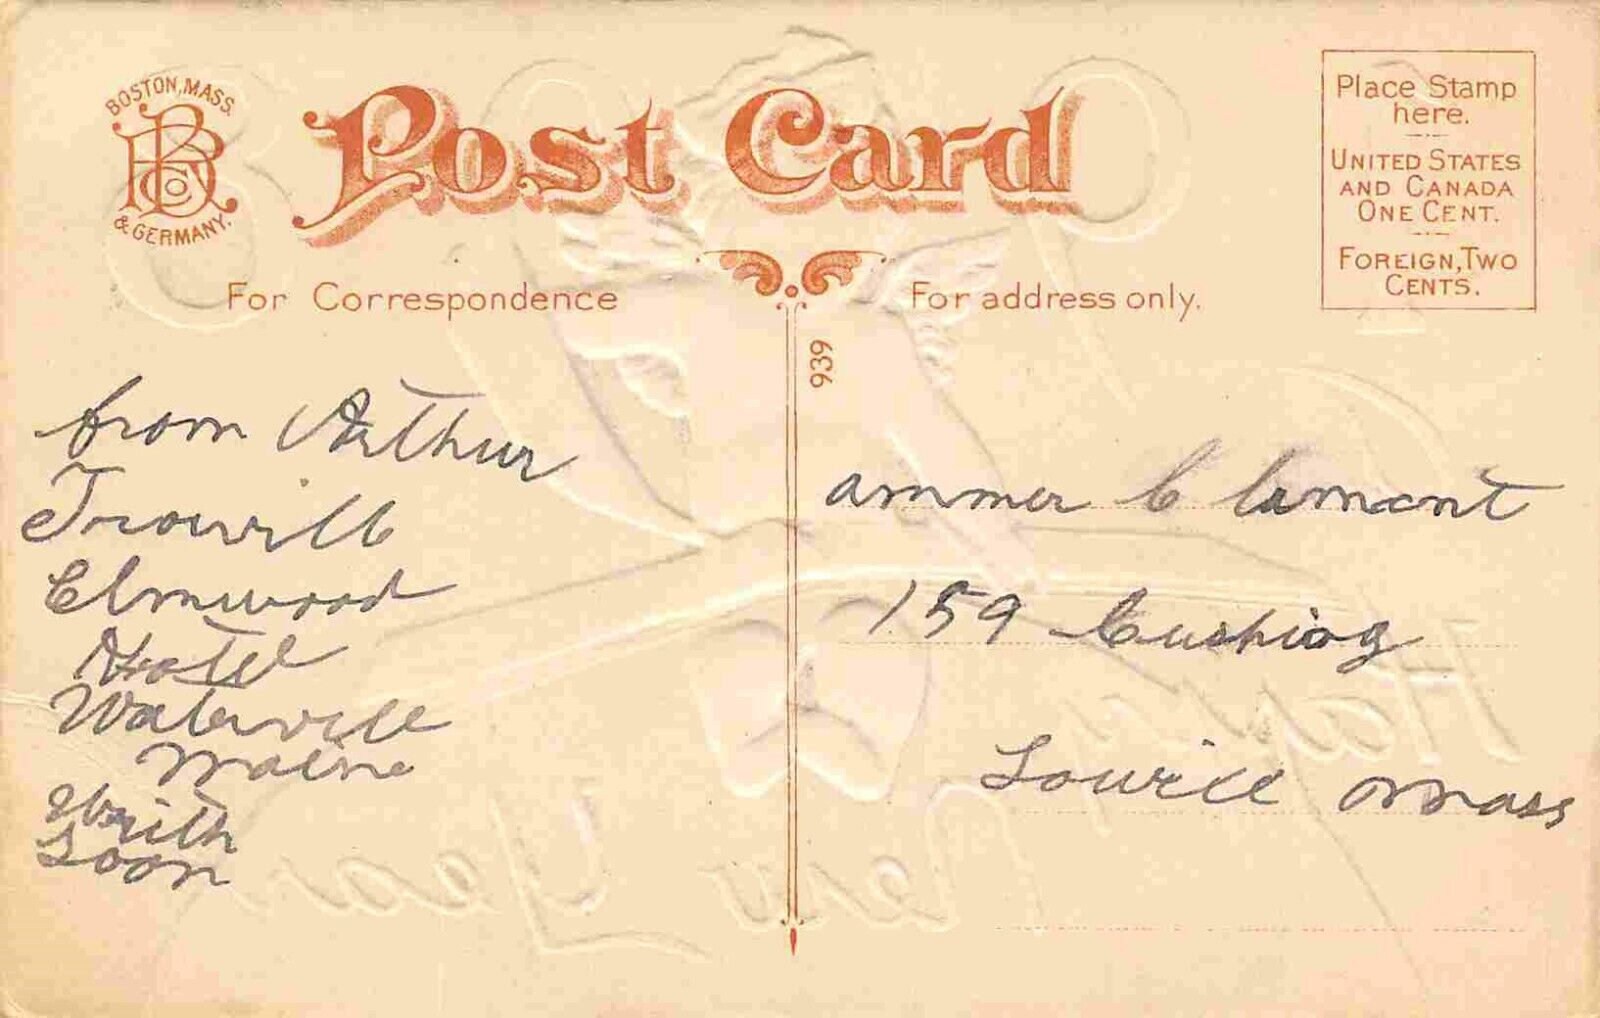 BOSTON, MASS.
RBCO
& GERMANY.
Post Card
Place Stamp
here.
UNITED STATES
AND CANADA
ONE CENT.
FOREIGN, TWO
CENTS.
For Correspondence
For address only.
939
from Arthur
Elmwood
Hotel
Waterville
Maine
Writh
Soon
ammer Clamont
159 Cushing
Lowell Mass
Happy
New Year